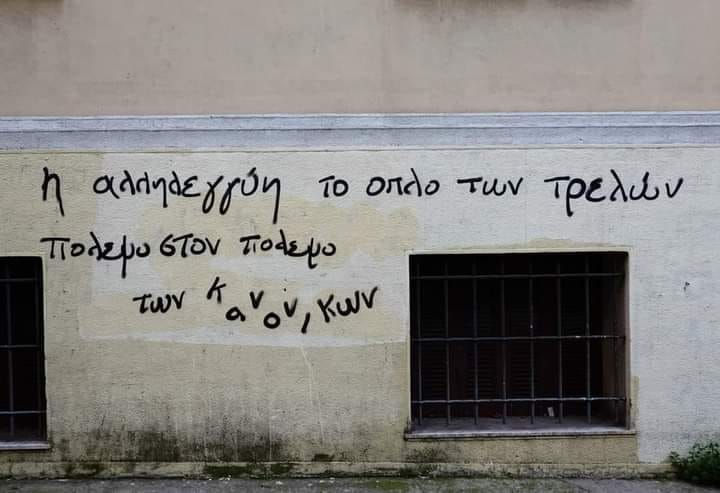 η αλληλεγγύη το οπλο των τρελών
πολεμο στον πολεμο
των κανονικων